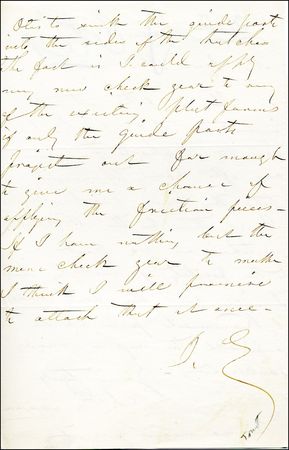 Otis to sink the guide posts
into the sides of the hatches
the fact is I could apply
my new check gear to any
of the existing platforms
if only the guide posts
project out far enough
to give me a chance of
applying the friction pieces -
If I have nothing but the
mere check gear to make
I think I will promise
to attach that at once -